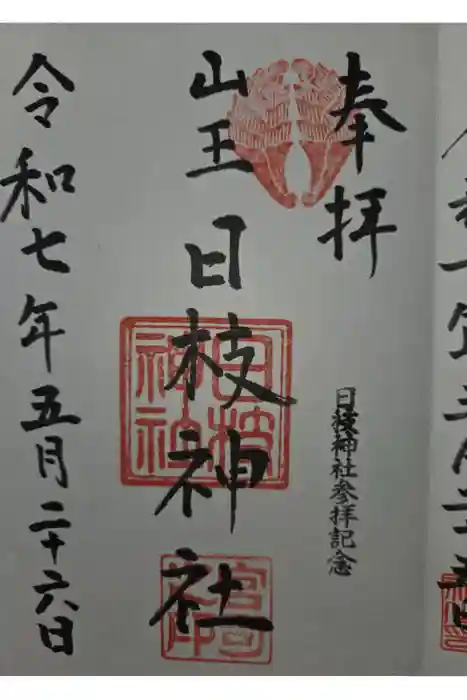 奉拝
日枝神社参拝記念
山王
日枝神社
日枝神社
宮司之印
令和七年五月二十六日